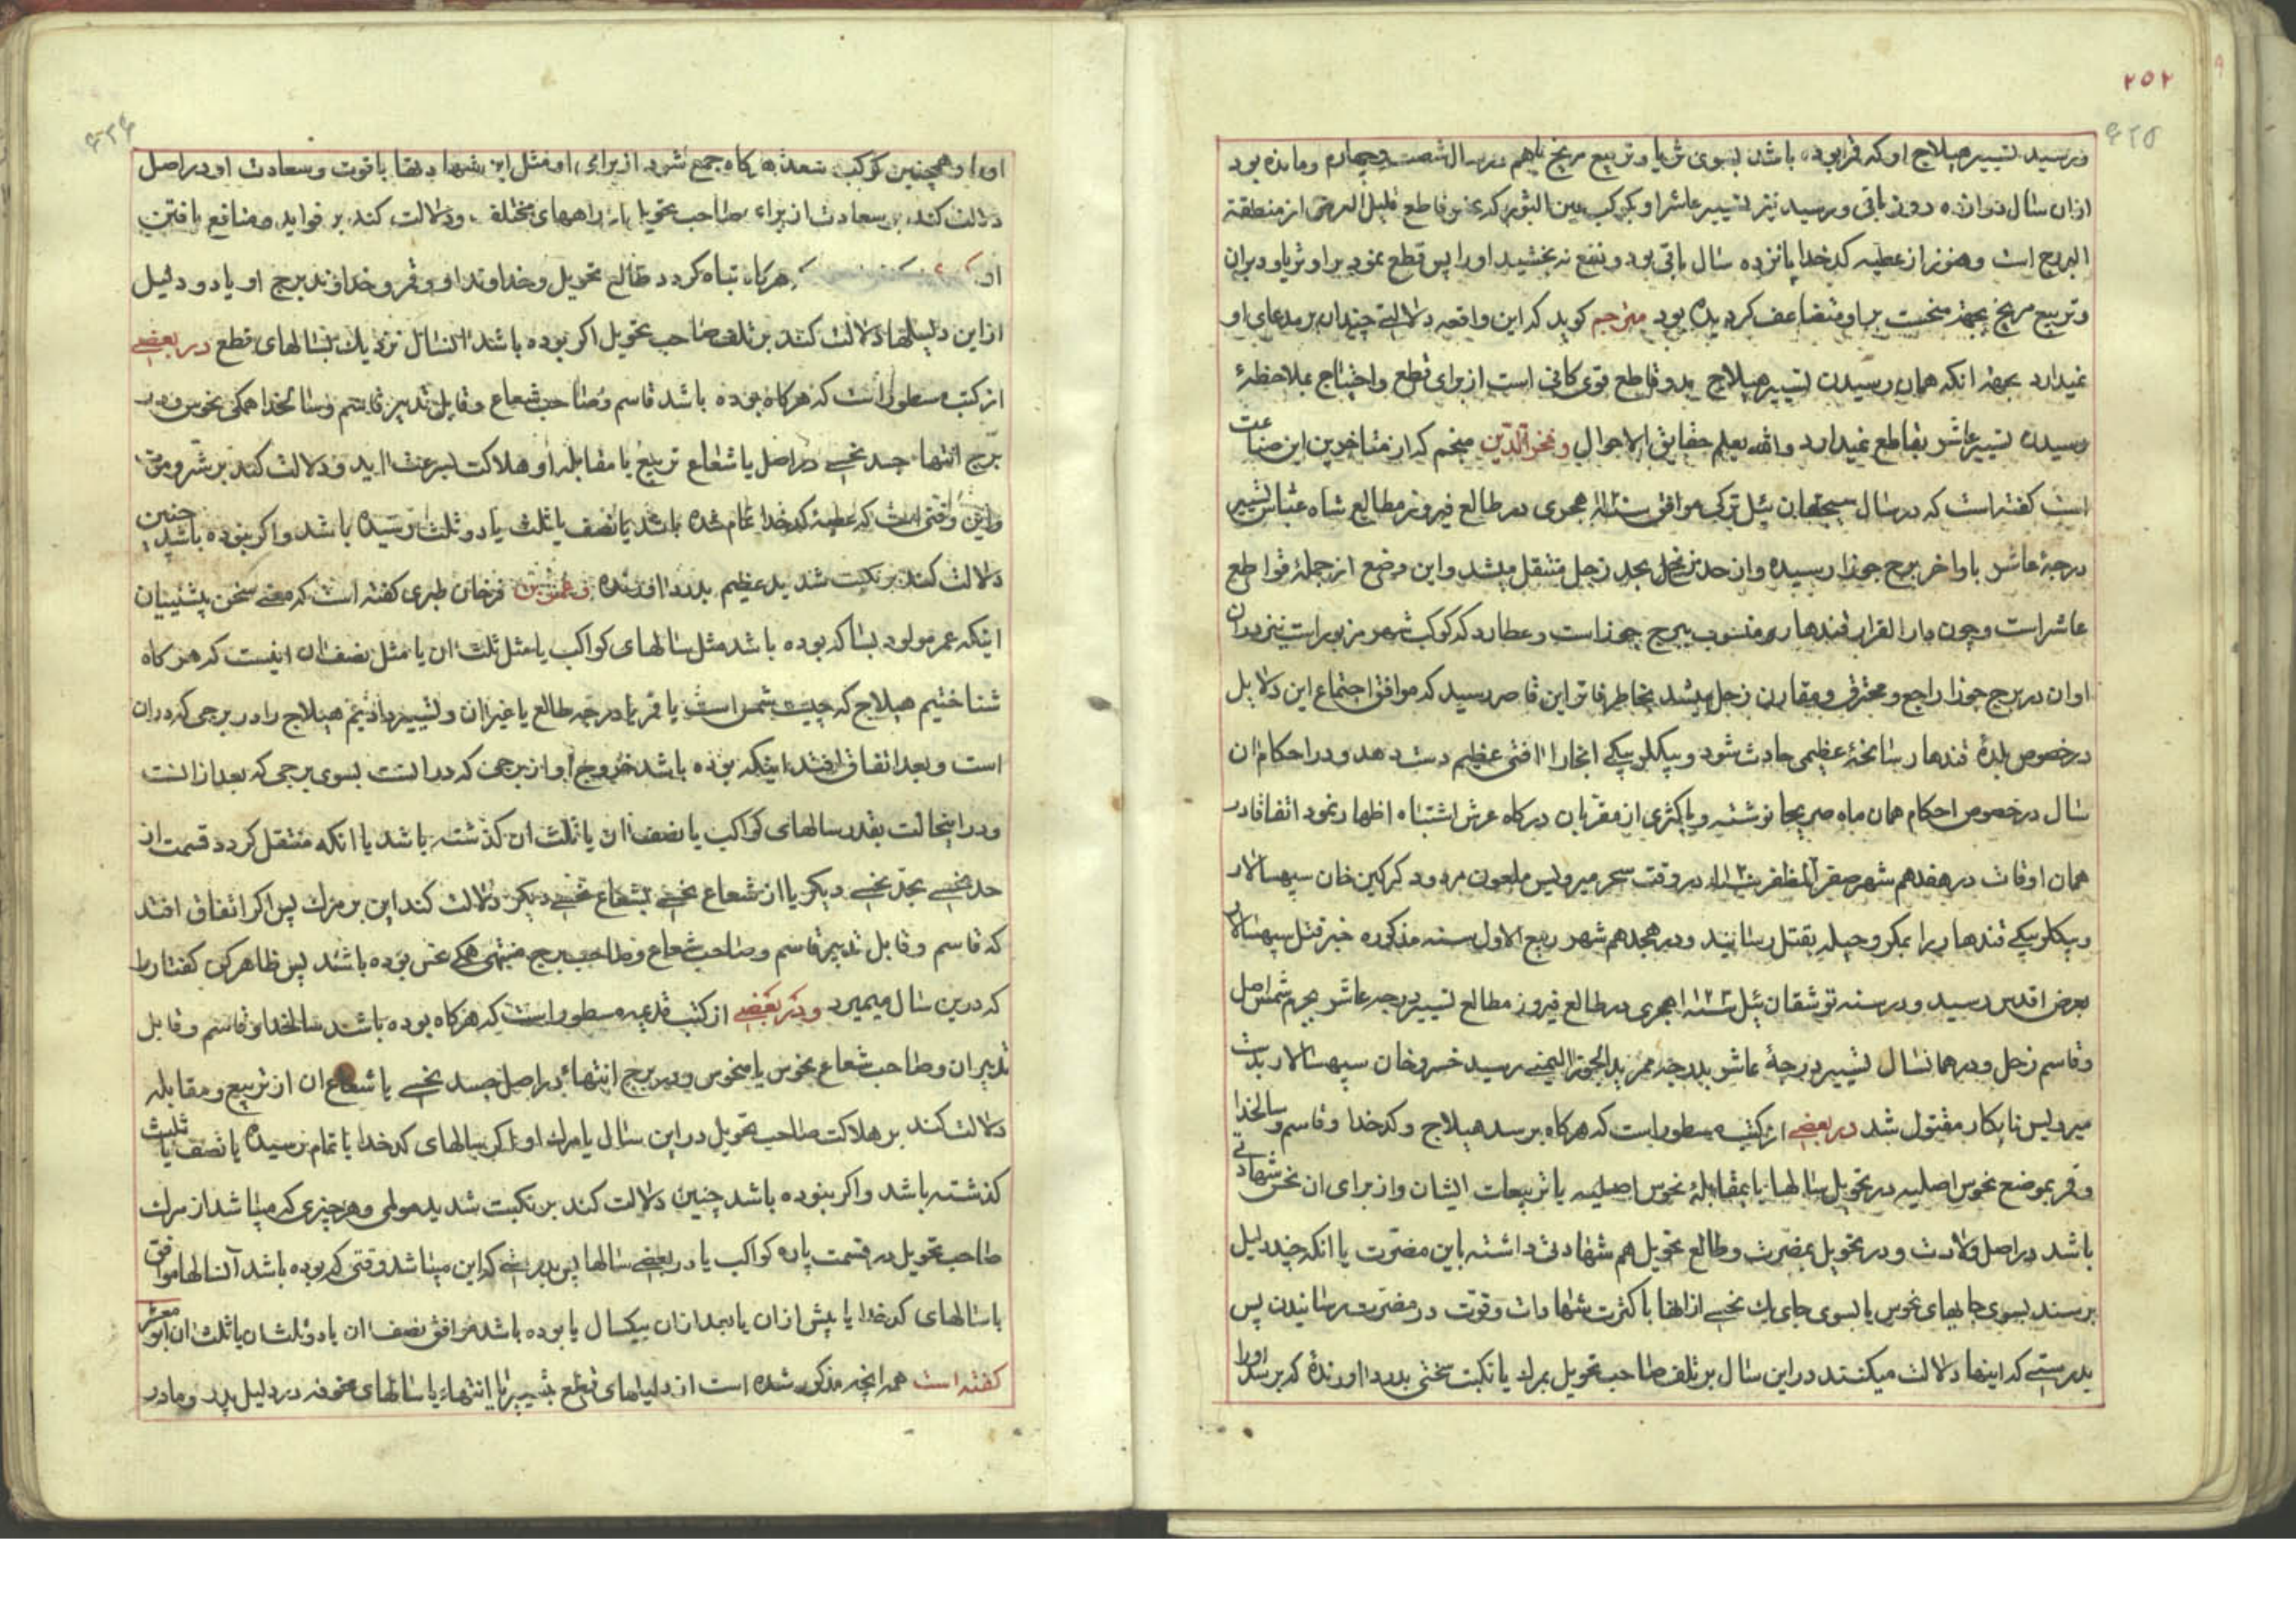 ۲۵۲
۶۲۵
ورسید تسییر هیلاج او که قمر بوده باشد بسوی ثریا و تربیع مریخ باهم در سال شصت وچهارم ومانده بود
ازان سال دوازده روز باقی ورسید نیز تسییر عاشر او بکوکب عین الثور که نحس قاطع قلیل العرض از منطقة
البروج است وهنوز از عطیه کدخدا پانزده سال باقی بود ونفع نه بخشید اورا پس قطع نمود براو ثریا ودبران
وتربیع مریخ بجهة منحست براو متضاعف کردیده بود مترجم کوید که این واقعه دلالتی چندان بر مدعای او
نمیدارد بجهة انکه همان رسیدن تسییر هیلاج بدو قاطع قوی کافی است از برای قطع واحتیاج بملاحظهٔ
رسیدن تسییر عاشر بقاطع نمیدارد والله یعلم حقایق الاحوال وفخر الدین منجم که از متاخرین این صناعت
است کفته است که در سال سیچقان ئیل ترکی موافق سنه هجری در طالع فیروز مطالع شاه عباس تسییر
درجهٔ عاشر باواخر برج جوزا رسیده واز حد مریخ بحد زحل منتقل میشد واین موضع از جملهٔ قواطع
عاشر است وچون دار القرار قندهار منسوب ببرج جوزا است وعطارد که کوکب شهر مزبور است نیز دران
اوان در برج جوزا راجع ومحترق ومقارن زحل میشد بخاطر فاتر این قاصر رسید که موافق اجتماع این دلایل
در خصوص بلدهٔ قندهار سانحهٔ عظیمی حادث شود وبیکلربیکی انجارا افتی عظیم دست دهد ودر احکام ان
سال در خصوص احکام همان ماه صریحا نوشته وباکثری از مقربان درکاه عرش اشتباه اظهار نمود اتفاقا در
همان اوقات در هفدهم شهر صفر المظفر در وقت سحر میرویس ملعون مردود کرکین خان سپهسالار
وبیکلربیکی قندهار را بمکر وحیله بقتل رسانید ودر هجدهم شهر ربیع الاول سنه مذکوره خبر قتل سپهسالار
بعرض اقدس رسید ودر سنه توشقان ئیل سنه ۱۱۲۳ هجری در طالع فیروز مطالع تسییر درجه عاشر بجرم شمس اصل
وقاسم زحل ودر همانسال تسییر درجهٔ عاشر بدرجهٔ ممر ید الجوزا الیمنی رسید خسرو خان سپهسالار بدست
میرویس نابکار مقتول شد در بعضی از کتب مسطور است که هرکاه برسد هیلاج وکدخدا وقاسم وسالخدا
وقمر بموضع نحوس اصلیه در تحویل سالها یا بمقابلهٔ نحوس اصلیه یا تربیعات ایشان واز برای ان نحس شهادتی
باشد در اصل ولادت ودر تحویل بمضرت وطالع تحویل هم شهادتی داشته باین مضرت یا انکه چند دلیل
برسند بسوی جایهای نحوس یا بسوی جای یك نحسی از انها با کثرت شهادات وقوت در مضرت رسانیدن پس
بدرستی که اینها دلالت میکنند در این سال بر تلف صاحب تحویل بمرك یا نکبت سختی بدرد اورنده که برسد اورا
۶۲۶
اورا وهمچنین کوکب سعد هرکاه جمع شود از برای او مثل این شهادتها با قوت وسعادت او در اصل
دلالت کند بر سعادت از برای صاحب تحویل از راههای مختلفه ودلالت کند بر فواید ومنافع یافتن
او هرکاه تباه کردد طالع تحویل وخداوند او وقمر وخداوند برج او یا دو دلیل
از این دلیلها دلالت کند بر تلف صاحب تحویل اکر بوده باشد انسال نزدیك بسالهای قطع در بعضی
از کتب مسطور است که هرکاه بوده باشد قاسم وصاحب شعاع وقابل تدبیر قاسم وسالخدا همکی نحوس ودر
برج انتها جسد نحسی در اصل یا شعاع تربیع یا مقابله او هلاکت بسرعت اید ودلالت کند بر شر ومرك
واین وقتی است که عطیهٔ کدخدا تمام شده باشد یا نصف یا ثلث یا دو ثلث رسیده باشد واکر نبوده باشد چنین
دلالت کند بر نکبت شدید عظیم بدرد اورنده وعمر بن فرخان طبری کفته است که معنی سخن پیشینیان
اینکه عمر مولود بسا که بوده باشد مثل سالهای کواکب یا مثل ثلث ان یا مثل نصف ان اینست که هرکاه
شناختیم هیلاج که چیست شمس است یا قمر یا درجه طالع یا غیر ان وتسییر دادیم هیلاج را در برجی که دران
است وبعد اتفاق افتد اینکه بوده باشد خروج او از برجی که در انست بسوی برجی که بعد از انست
ودر اینحالت بقدر سالهای کواکب یا نصف ان یا ثلث ان کذشته باشد یا انکه منتقل کردد قسمت از
حد نحسی بحد نحسی دیکر یا از شعاع نحسی بشعاع نحسی دیکر دلالت کند این بر مرك پس اکر اتفاق افتد
که قاسم وقابل تدبیر قاسم وصاحب شعاع وصاحب برج منتهی همکی نحس بوده باشند پس ظاهر کن کفتار را
که درین سال میمیرد ودر بعضی از کتب قدیمه مسطور است که هرکاه بوده باشد سالخدا وقاسم وقابل
تدبیر ان وصاحب شعاع نحوس یا منحوس ودر برج انتهاء در اصل جسد نحسی یا شعاع ان از تربیع ومقابله
دلالت کند بر هلاکت صاحب تحویل در این سال یا مرك او اکر سالهای کدخدا با تمام رسیده یا نصف یا ثلث
کذشته باشد واکر نبوده باشد چنین دلالت کند بر نکبت شدید هولی وهر چیزی که میباشد از مرك
صاحب تحویل در قسمت پاره کواکب یا در بعضی سالها پس بدرستی که این میباشد وقتی که بوده باشد آنسالها موافق
باسالهای کدخدا یا پیش ازان یا بعد ازان بیکسال یا بوده باشد موافق نصف ان یا دو ثلثان یا ثلث ان ابو معشر
کفته است همه انچه مذکور شده است از دلیلهای قطع بتسییر یا انتهاء یا سالهای مخوفه در دلیل پدر ومادر